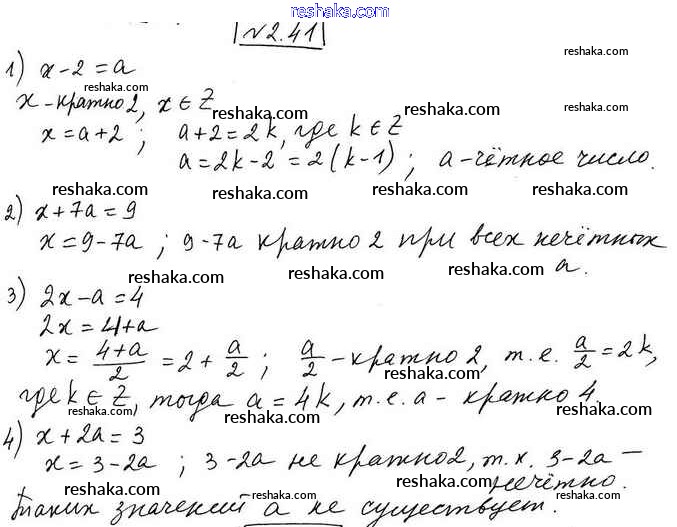 reshaka.com
№2.41
reshaka.com
1) x-2=a
reshaka.com
reshaka.com
reshaka.com
x-кратно 2, x∈Z
reshaka.com
reshaka.com
x=a+2; a+2=2k, где k∈Z
reshaka.com
a=2k-2=2(k-1); a-чётное число.
reshaka.com reshaka.com reshaka.com
2) x+7a=9
reshaka.com
x=9-7a; 9-7a кратно 2 при всех нечётных
reshaka.com reshaka.com
a.
reshaka.com
3) 2x-a=4
reshaka.com
2x=4+a
reshaka.com reshaka.com
x=(4+a)/2=2+a/2; a/2-кратно 2, т.е. a/2=2k,
reshaka.com
reshaka.com
где k∈Z, тогда a=4k, т.е. a-кратно 4.
reshaka.com reshaka.com
4) x+2a=3
reshaka.com
reshaka.com
x=3-2a; 3-2a не кратно 2, т.к. 3-2a-
reshaka.com
reshaka.com
нечётно.
reshaka.com
Таких значений a не существует.
reshaka.com